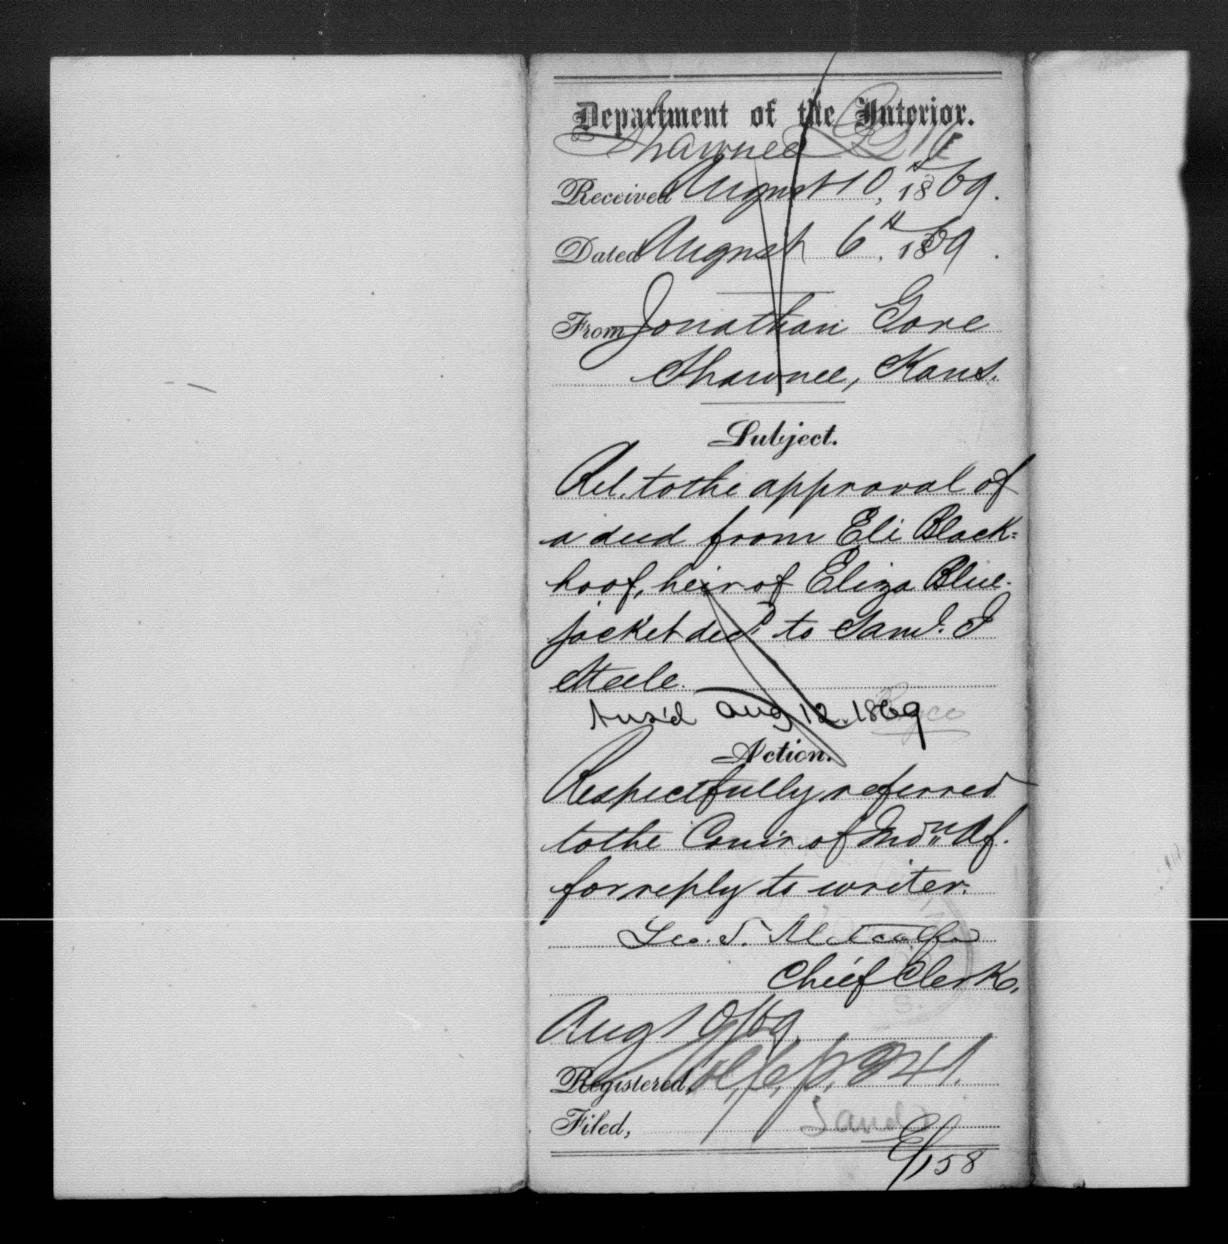 Department of the Interior.
Shawnee
Received August 10, 1869.
Dated August 6th, 1869.
From Jonathan Gore
Shawnee, Kans.
Subject.
Rel. to the approval of
a deed from Eli Black=
hoof, heir of Eliza Blue-
jacket decd to Saml. J
Steele.
Ans'd Aug 12. 1869
Action.
Respectfully referred
to the Com'r of Indn Af.
for reply to writer.
Geo. S. Metcalfe
Chief Clerk.
Augt 9/69
Registered, Vol, 6, p, 241.
Filed, Land
G/158